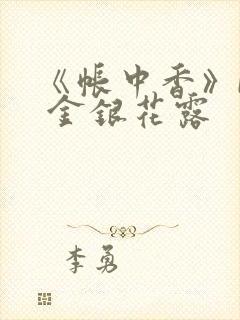 《帐中香》
金银花露
李勇